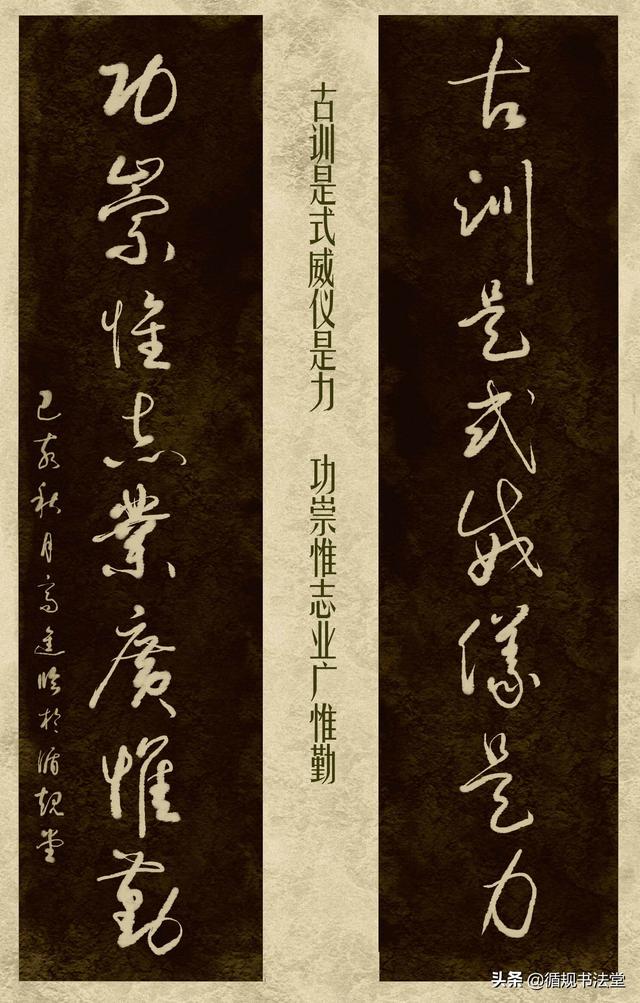 古訓是式威儀是力
古训是式威仪是力 功崇惟志业广惟勤
功崇惟志業廣惟勤
己亥秋月高進臨於循規堂
头条 @循规书法堂